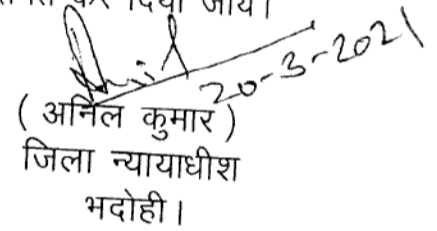 कर दिया जाय।
20-3-2021
( अनिल कुमार )
जिला न्यायाधीश
भदोही।